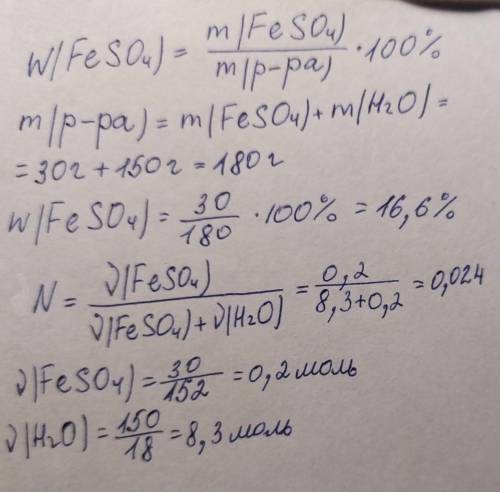 W(FeSO₄) = m(FeSO₄)/m(р-ра) · 100%
m(р-ра) = m(FeSO₄) + m(H₂O) =
= 30г + 150г = 180г
W(FeSO₄) = 30/180 · 100% = 16,6%
N = ν(FeSO₄)/ν(FeSO₄)+ν(H₂O) = 0,2/8,3+0,2 = 0,024
ν(FeSO₄) = 30/152 = 0,2 моль
ν(H₂O) = 150/18 = 8,3 моль